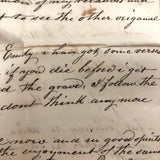 of my
t to see the other original
Emty I have got some verses
if you die before I get
d the grave, I follow the
dont think any more
e more and in good spirits
the enjoyment of the same